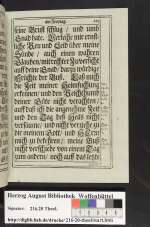 am Freytag. 223
seine Brust schlug / und umb
Gnad bate. Verleihe mir ernst-
liche Reu und Leid über meine
Sünde / auch einen wahren
Glauben / mit rechter Zuversicht
auf deine Gnad / darzu würdige
Früchte der Buß. Laß mich
die Zeit meiner Heimsuchung
erkennen / und den Reichthum
deiner Güte nicht verachten /
daß ich die angenehme Zeit
und den Tag deß Heils nicht
versäume / und nicht verziehe zu
dir meinen Gott und HErrn
mich zu bekehren / meine Buß
nicht verschiebe von einem Tag
zum andern / noch auf das letzte
Herzog August Bibliothek Wolfenbüttel
Signatur: 216.28 Theol.
http://diglib.hab.de/drucke/216-28-theol/start.htm